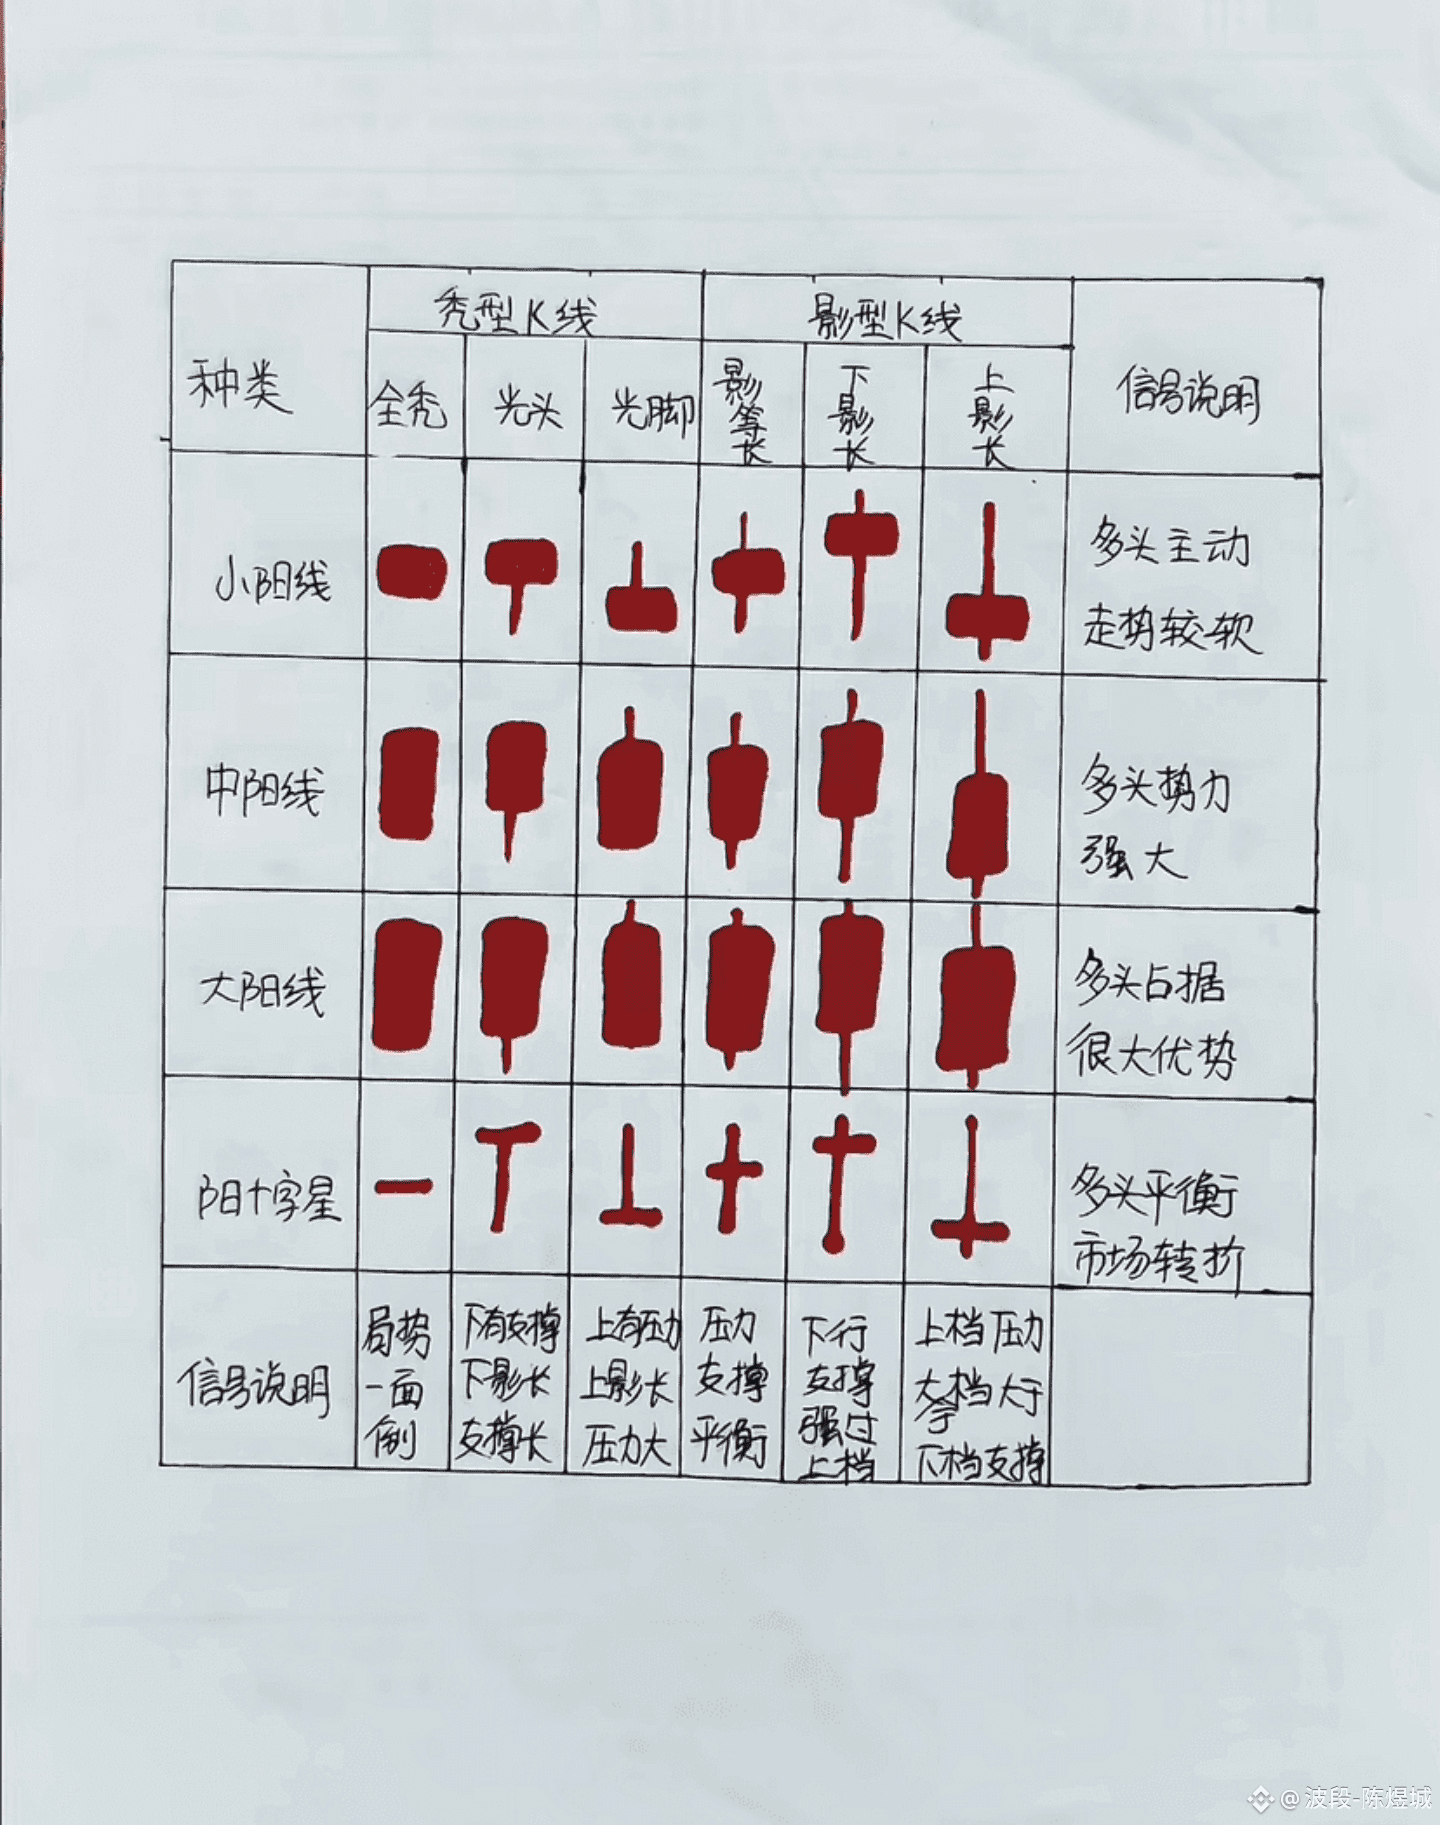 种类
秃型K线
影型K线
信号说明
全秃
光头
光脚
影等长
下影长
上影长
小阳线
多头主动
走势较软
中阳线
多头势力
强大
大阳线
多头占据
很大优势
阳十字星
多头平衡
市场转折
信号说明
局势
一面
倒
下有支撑
下影长
支撑长
上有压力
上影长
压力大
压力
支撑
平衡
下行
支撑
强过
上档
上档压力
大档大于
下档支撑
@波段-陈煜城